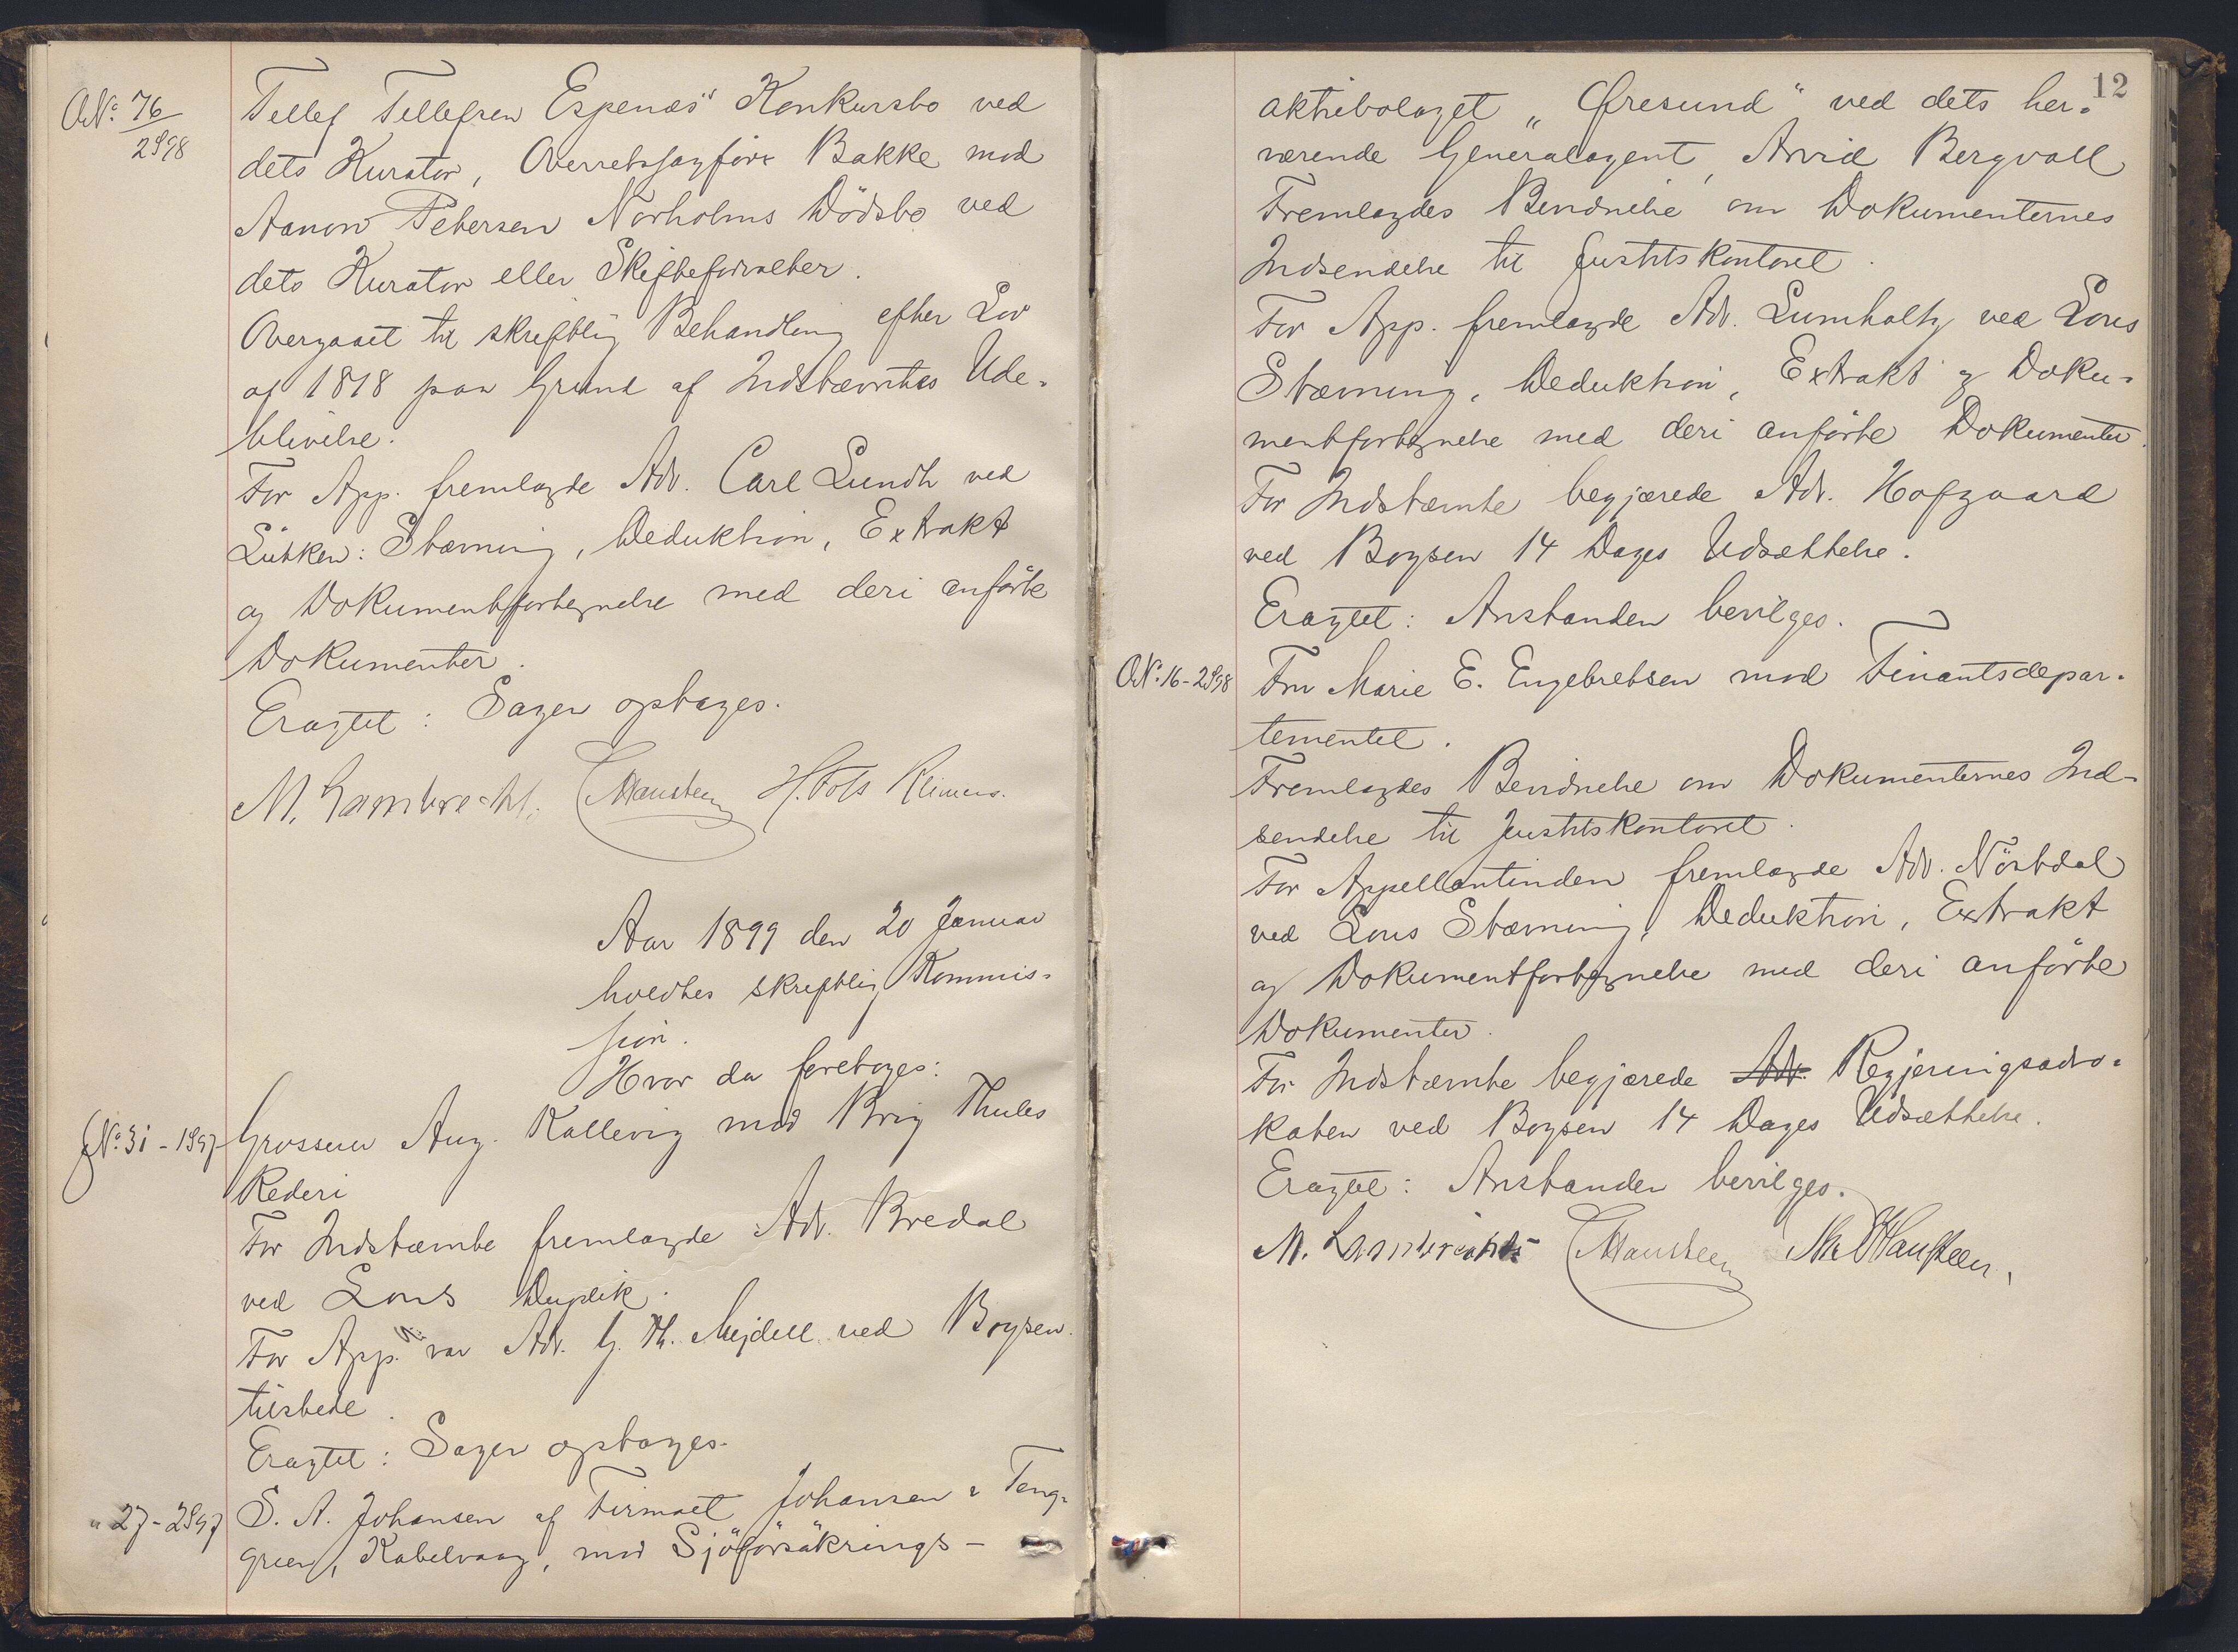 O.No. 76/2S98
Tellef Tellefsen Espenæs' Konkursbo ved
dets Kurator, Overretssagfører Bakke mod
Aanon Petersen Norholms Dödsbo ved
dets Kurator eller Skifteforvalter.
Overgaaet til skriftlig Behandling efter Lov
af 1818 paa Grund af Indstævntes Ude-
blivelse.
For App. fremlagde Adv. Carl Lundh ved
Lütken: Stævning, Deduktion, Extrakt
og Dokumentfortegnelse med deri anförte
Dokumenter.
Eragtet: Sagen optages.
M. Lambrechts. Hansteen
Aar 1899 den 20 Januar
holdtes skriftlig Kommis-
sion.
Hvor da foretoges:
No. 31 - 1S97
Grosserer Aug. Kallevig mod Brig Thules
Rederi
For Indstæmte fremlagde Adv. Bredal
ved Lous Duplik.
For App. var Adv. G. Th. Mejdell ved Boysen
tilstede.
Eragtet: Sagen optages.
" 27 - 2S97
S. A. Johansen af Firmaet Johansen & Teng-
green, Kabelvaag, mod Sjöförsäkrings-
12
aktiebolaget „Öresund“ ved dets her-
værende Generalagent, Arvid Bergvall
Fremlagdes Bevidnelse om Dokumenternes
Indsendelse til Justitskontoret.
For App. fremlagde Adv. Lumholtz ved Lous
Stævning, Deduktion, Extrakt og Doku-
mentfortegnelse med deri anförte Dokumenter.
For Indstæmte begjærede Adv. Hofgaard
ved Boysen 14 Dages Udsættelse.
Eragtet: Anstanden bevilges.
O.No. 16 - 2S98
Fru Marie E. Engebretsen mod Finantsdepar-
tementet.
Fremlagdes Bevidnelse om Dokumenternes Ind-
sendelse til Justitskontoret.
For Appellantinden fremlagde Adv. Nörtdal
ved Lous Stævning, Deduktion, Extrakt
og Dokumentfortegnelse med deri anförte
Dokumenter.
For Indstæmte begjærede Adv. Regjeringsadvo-
katen ved Boysen 14 Dages Udsættelse.
Eragtet: Anstanden bevilges.
M. Lambrechts Hansteen